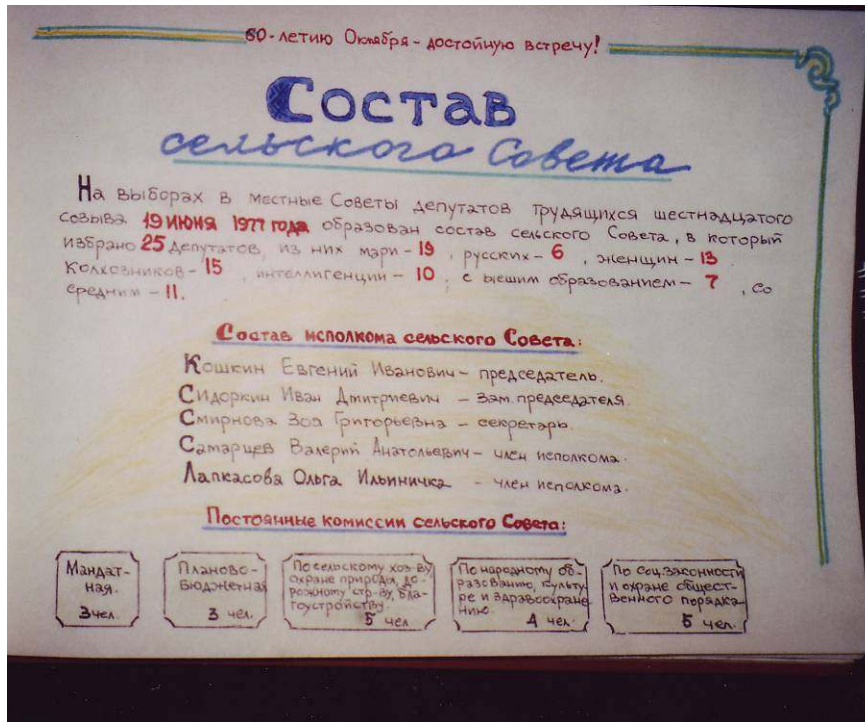 60-летию Октября - достойную встречу!
Состав
сельского Совета
На выборах в местные Советы депутатов трудящихся шестнадцатого
созыва 19 июня 1977 года образован состав сельского Совета, в который
избрано 25 депутатов, из них мари - 19, русских - 6, женщин - 13
колхозников - 15, интеллигенции - 10, с высшим образованием - 7, со
средним - 11.
Состав исполкома сельского Совета:
Кошкин Евгений Иванович - председатель.
Сидоркин Иван Дмитриевич - зам. председателя.
Смирнова Зоя Григорьевна - секретарь.
Самарцев Валерий Анатольевич - член исполкома.
Лапкасова Ольга Ильиничка - член исполкома.
Постоянные комиссии сельского Совета:
Мандат-
ная.
3 чел.
Планово-
бюджетная
3 чел.
По сельскому хоз-ву,
охране природы, до-
рожному стр-ву, бла-
гоустройству.
5 чел
По народному об-
разованию, культу-
ре и здравоохране-
нию.
4 чел.
По соц. законности
и охране общест-
венного порядка
5 чел.